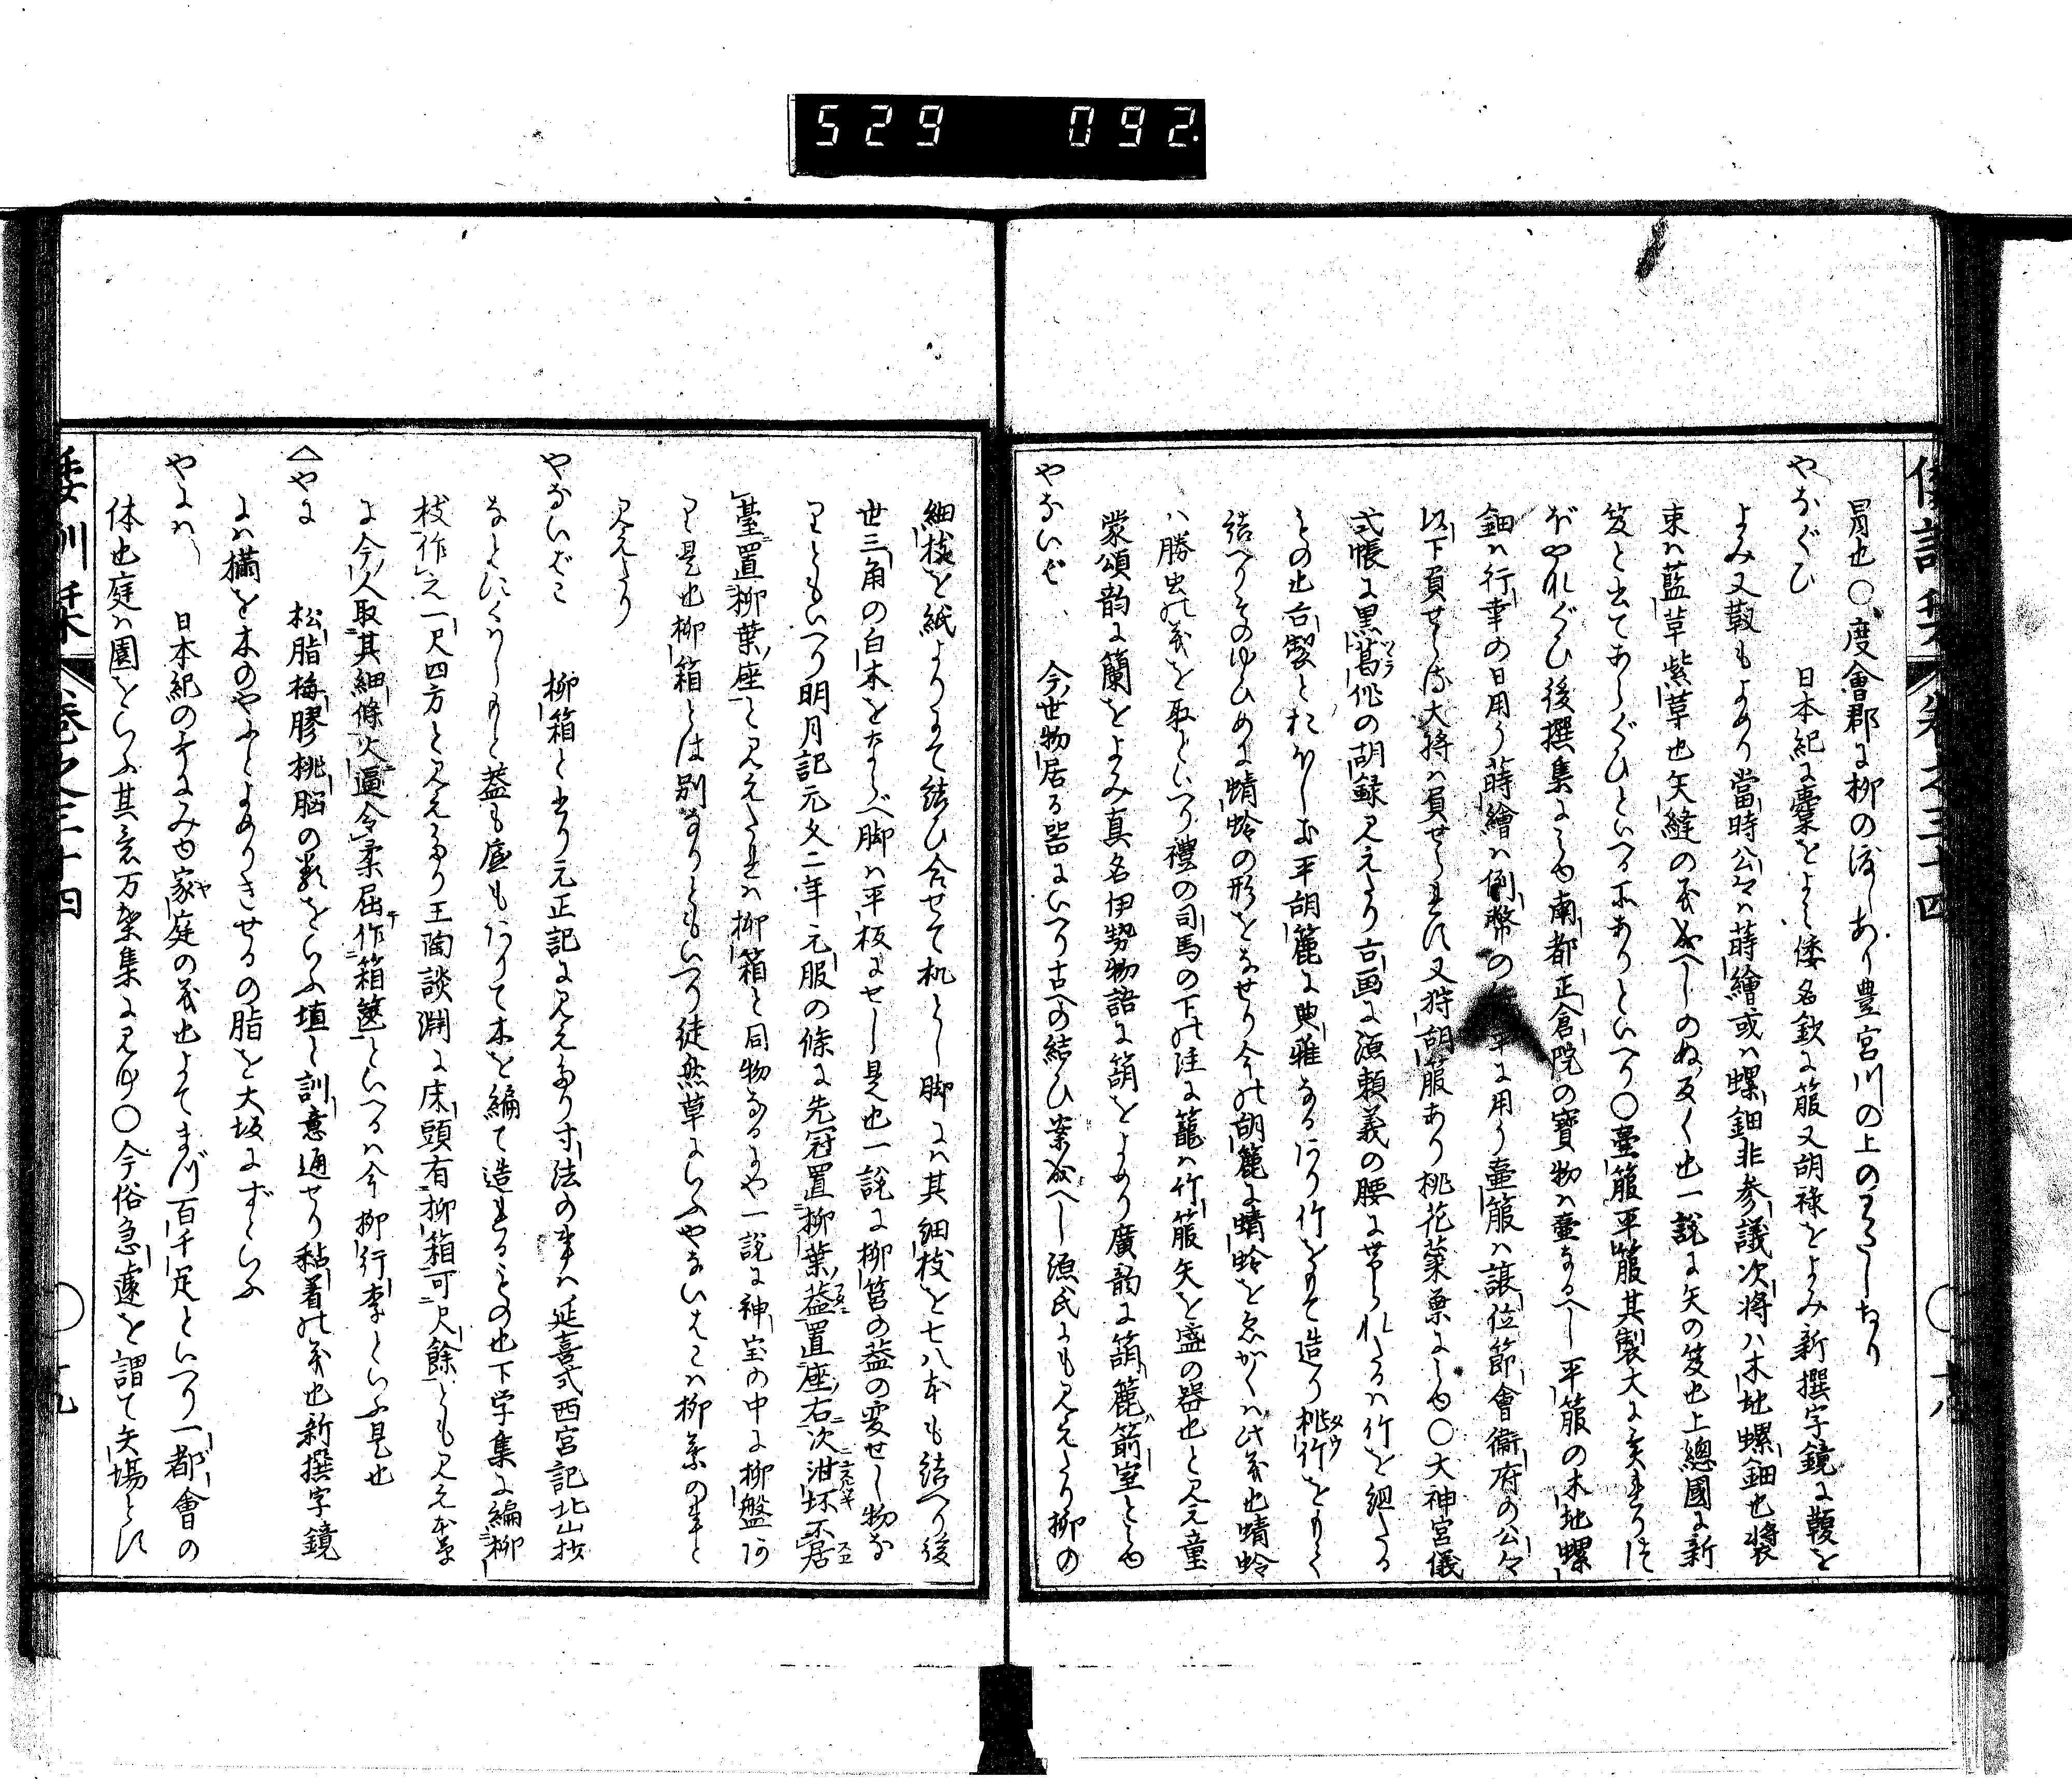 529 092
倭訓栞 卷之三十四
冐也〇度會郡に柳の渡しあり豊宮川の上のわたしなり
やなぐひ 日本紀に櫜をよみ倭名鈔に箙又胡祿をよみ新撰字鏡に鞬を
よみ又靫もよめり當時公々は蒔繪或は螺鈿非參議次將は木地螺鈿也裝
束は藍草紫草也矢縫の義なへしのぬ反く也一説に矢の笈也上總國に新
笈と出てあらぐひといへる所ありといへり〇壷箙平箙其製大に異れり
やれぐひ後撰集にみゆ南都正倉院の寶物は壷なるへし平箙の木地螺
鈿は行幸の日用う蒔繪は例幣の に用う壷箙は譲位節會衞府の公々
以下負せらる大將は負せられす又狩胡箙あり桃花蘂葉にみゆ〇大神宮儀
式帳に黒葛作の胡録見えたり古画に源頼義の腰に帶られたるは竹を組たる
もの也古製とおほしよ平胡簏に典雅なるあり竹をもて造り桃竹をもて
結へりそのゆひめに蜻蛉の形をなせり今の胡簏に蜻蛉をゑがくは此義也蜻蛉
ハ勝虫の義を取といへり禮の司馬の下の注に籠は竹箙矢を盛の器也と見え童
蒙頌韵に籣をよみ真名伊勢物語に箶をよめり廣韵に箶簏箭室とみゆ
やないば 今世物居る器にいへり古への結ひ案なへし源氏にも見えたり柳の
細枝を紙よりにて結ひ合せて机とし脚には其細枝を七八本も結へり後
世三角の白木をならべ脚は平板にせし是也一説に柳筥の蓋の変せし物な
りともいへり明月記元久二年元服の條に先冠置柳葉蓋置座右次泔坏不居
臺置柳葉座と見えたれは柳箱と同物なるにや一説に神宝の中に柳盤あ
り是也柳箱とは別なりともいへり徒然草にいふやないはこは柳葉の事と
見えたり
やないばこ 柳箱と書り元正記に見えたり寸法の事は延喜式西宮記北山抄
なとにくはしもと蓋も底もありて木を編て造れるもの也下学集に編柳
枝作之一尺四方と見えたり王陶談淵に床頭有柳箱可尺餘とも見え本草
に今人取其細條火逼令柔屈作箱篋といへるは今柳行李といふ是也
△やに 松脂梅膠桃脳の類をいふ埴と訓意通せり黏着の義也新撰字鏡
には樠を木のやにとよめりきせるの脂を大坂にずといふ
やには 日本紀の哥にみゆ家庭の義也よてまづ百千足といへり一都會の
体也庭は園をいふ其意万葉集に見ゆ〇今俗急遽を謂て矢場とす
倭訓栞 卷之三十四